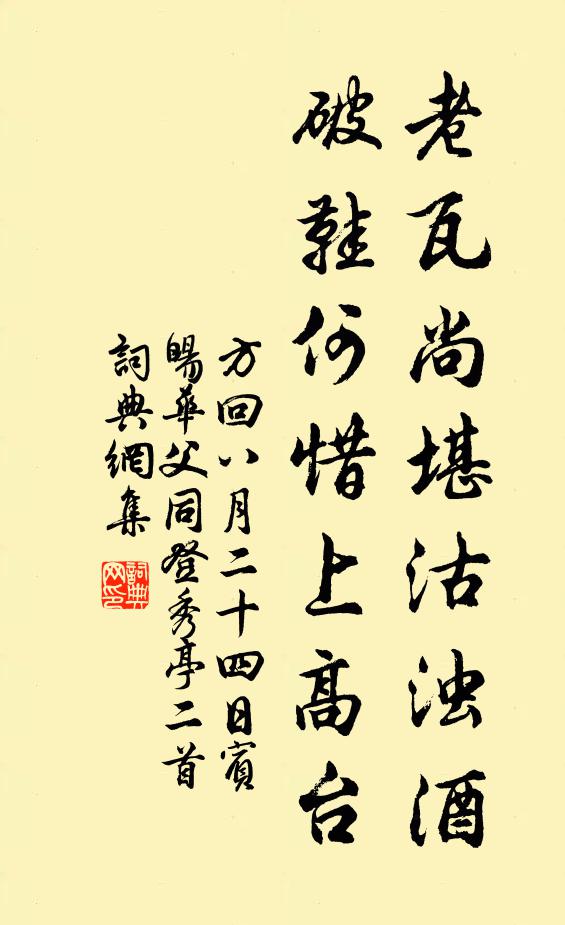 老瓦尚堪沽浊酒
破鞋何惜上高台
方回八月二十四日賓
暘華父同登秀亭二首
詞典網集
詞典网印